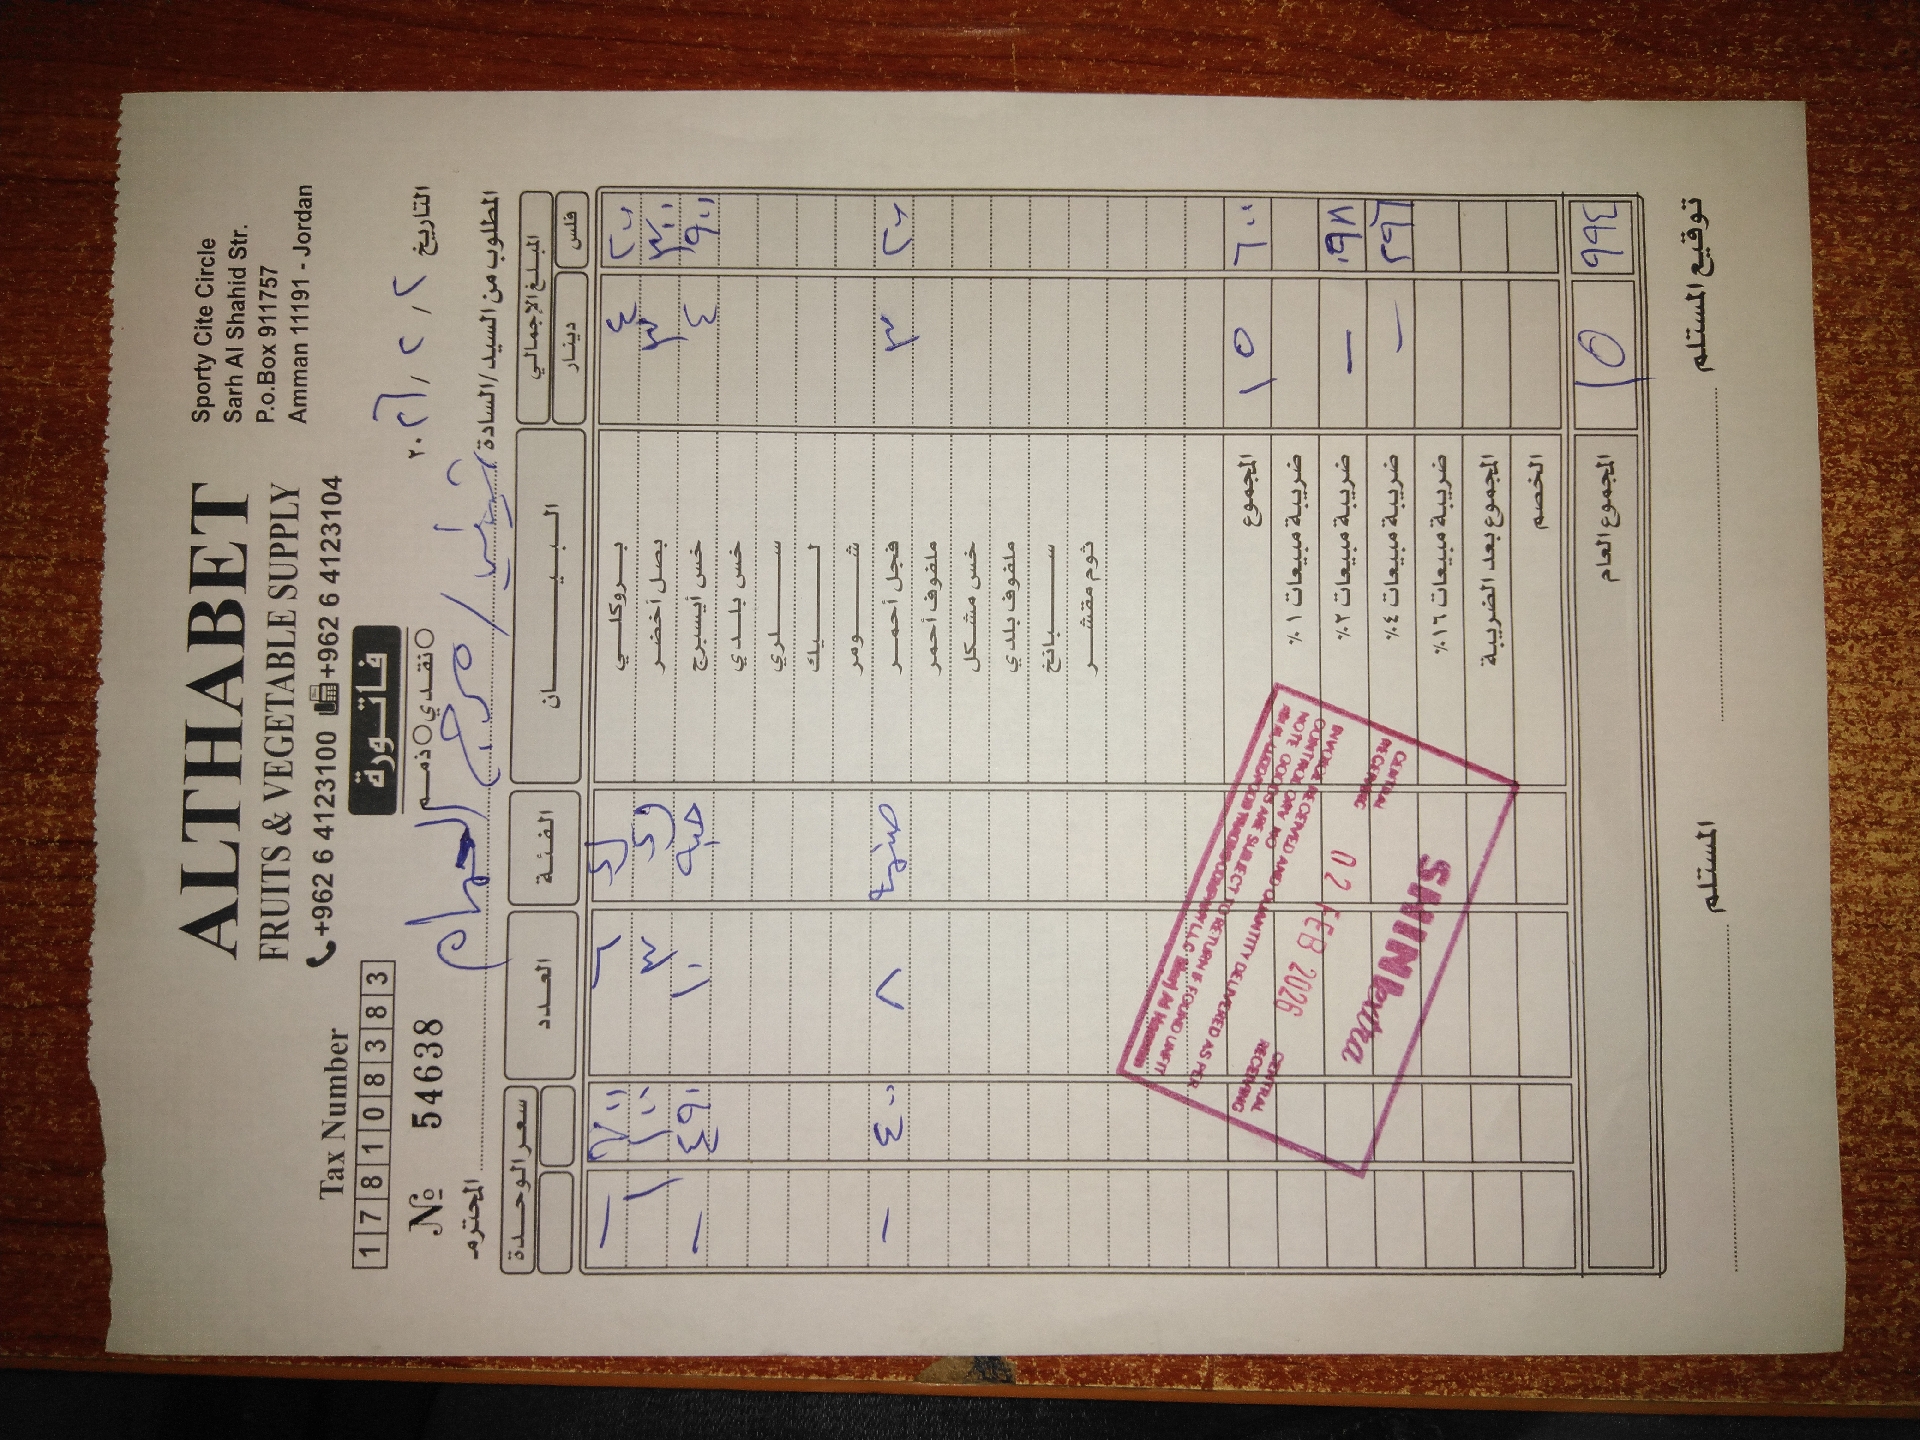 ALTHABET
FRUITS & VEGETABLE SUPPLY
+962 6 4123100 +962 6 4123104
Sporty Cite Circle
Sarh Al Shahid Str.
P.o.Box 911757
Amman 11191 - Jordan
Tax Number
1 7 8 1 0 8 3 8 3
فاتورة
نقدي ذمم
№ 54638
التاريخ ٢ / ٢ / ٢٠٢٦
المطلوب من السيد/السادة / مرج الحمام المحترم
المبلغ الإجمالي البيــــان الفئة العدد سعر الوحدة
فلس دينار
٢٠٠ ٤ بروكلي ٦ ٧٠٠ —
٣٠٠ ٣ بصل أخضر ٣ ١٠٠ ١
٩٠٠ ٤ خس أيسبرج حبه ١٠ ٤٩٠ —
خس بلدي
سلري
ليك
شومر
٢٠٠ ٣ فجل أحمر ٨ ٤٠٠ —
ملفوف أحمر
خس مشكل
ملفوف بلدي
سبانخ
ثوم مقشر
٦٠٠ ١٥ المجموع
ضريبة مبيعات ١٪
٠٩٨ — ضريبة مبيعات ٢٪
٢٩٦ — ضريبة مبيعات ٤٪
ضريبة مبيعات ١٦٪
المجموع بعد الضريبة
الخصم
٩٩٤ ١٥ المجموع العام
توقيع المستلم المستلم
SHINI extra
CENTRAL RECEIVING 02 FEB 2026 CENTRAL RECEIVING
INVOICE RECEIVED AND QUANTITY DELIVERED AS PER
NOTE GOODS ARE SUBJECT TO RETURN IF FOUND UNFIT